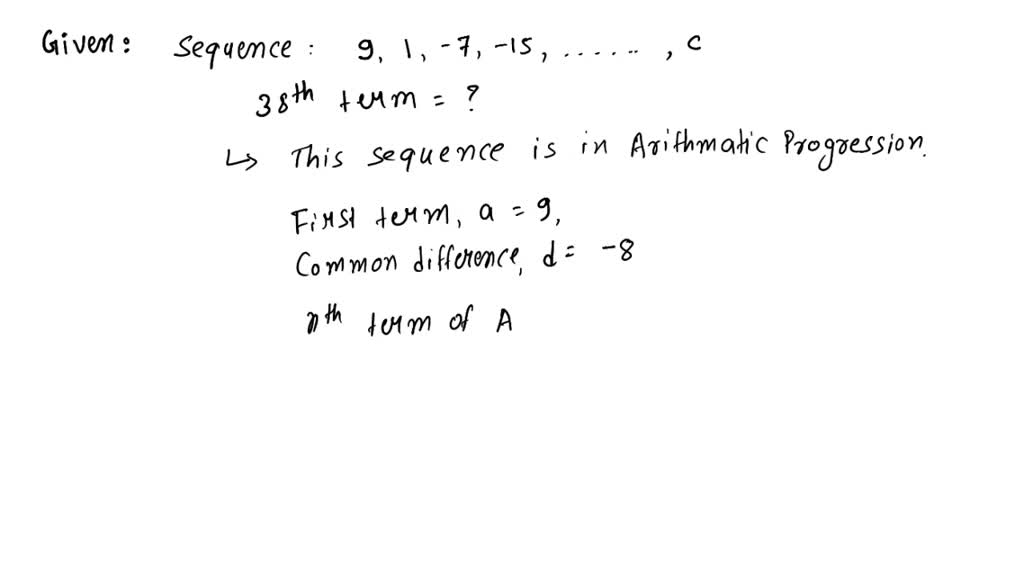 Given: Sequence: 9, 1, -7, -15, ......, c
38th term = ?
↳ This sequence is in Arithmatic Progression.
First term, a = 9,
Common difference, d = -8
nth term of A